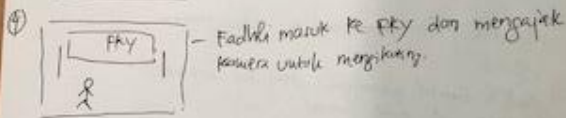 4
FKY
- Fadhli masuk ke FKY dan mengajak
kamera untuk mengikuting.